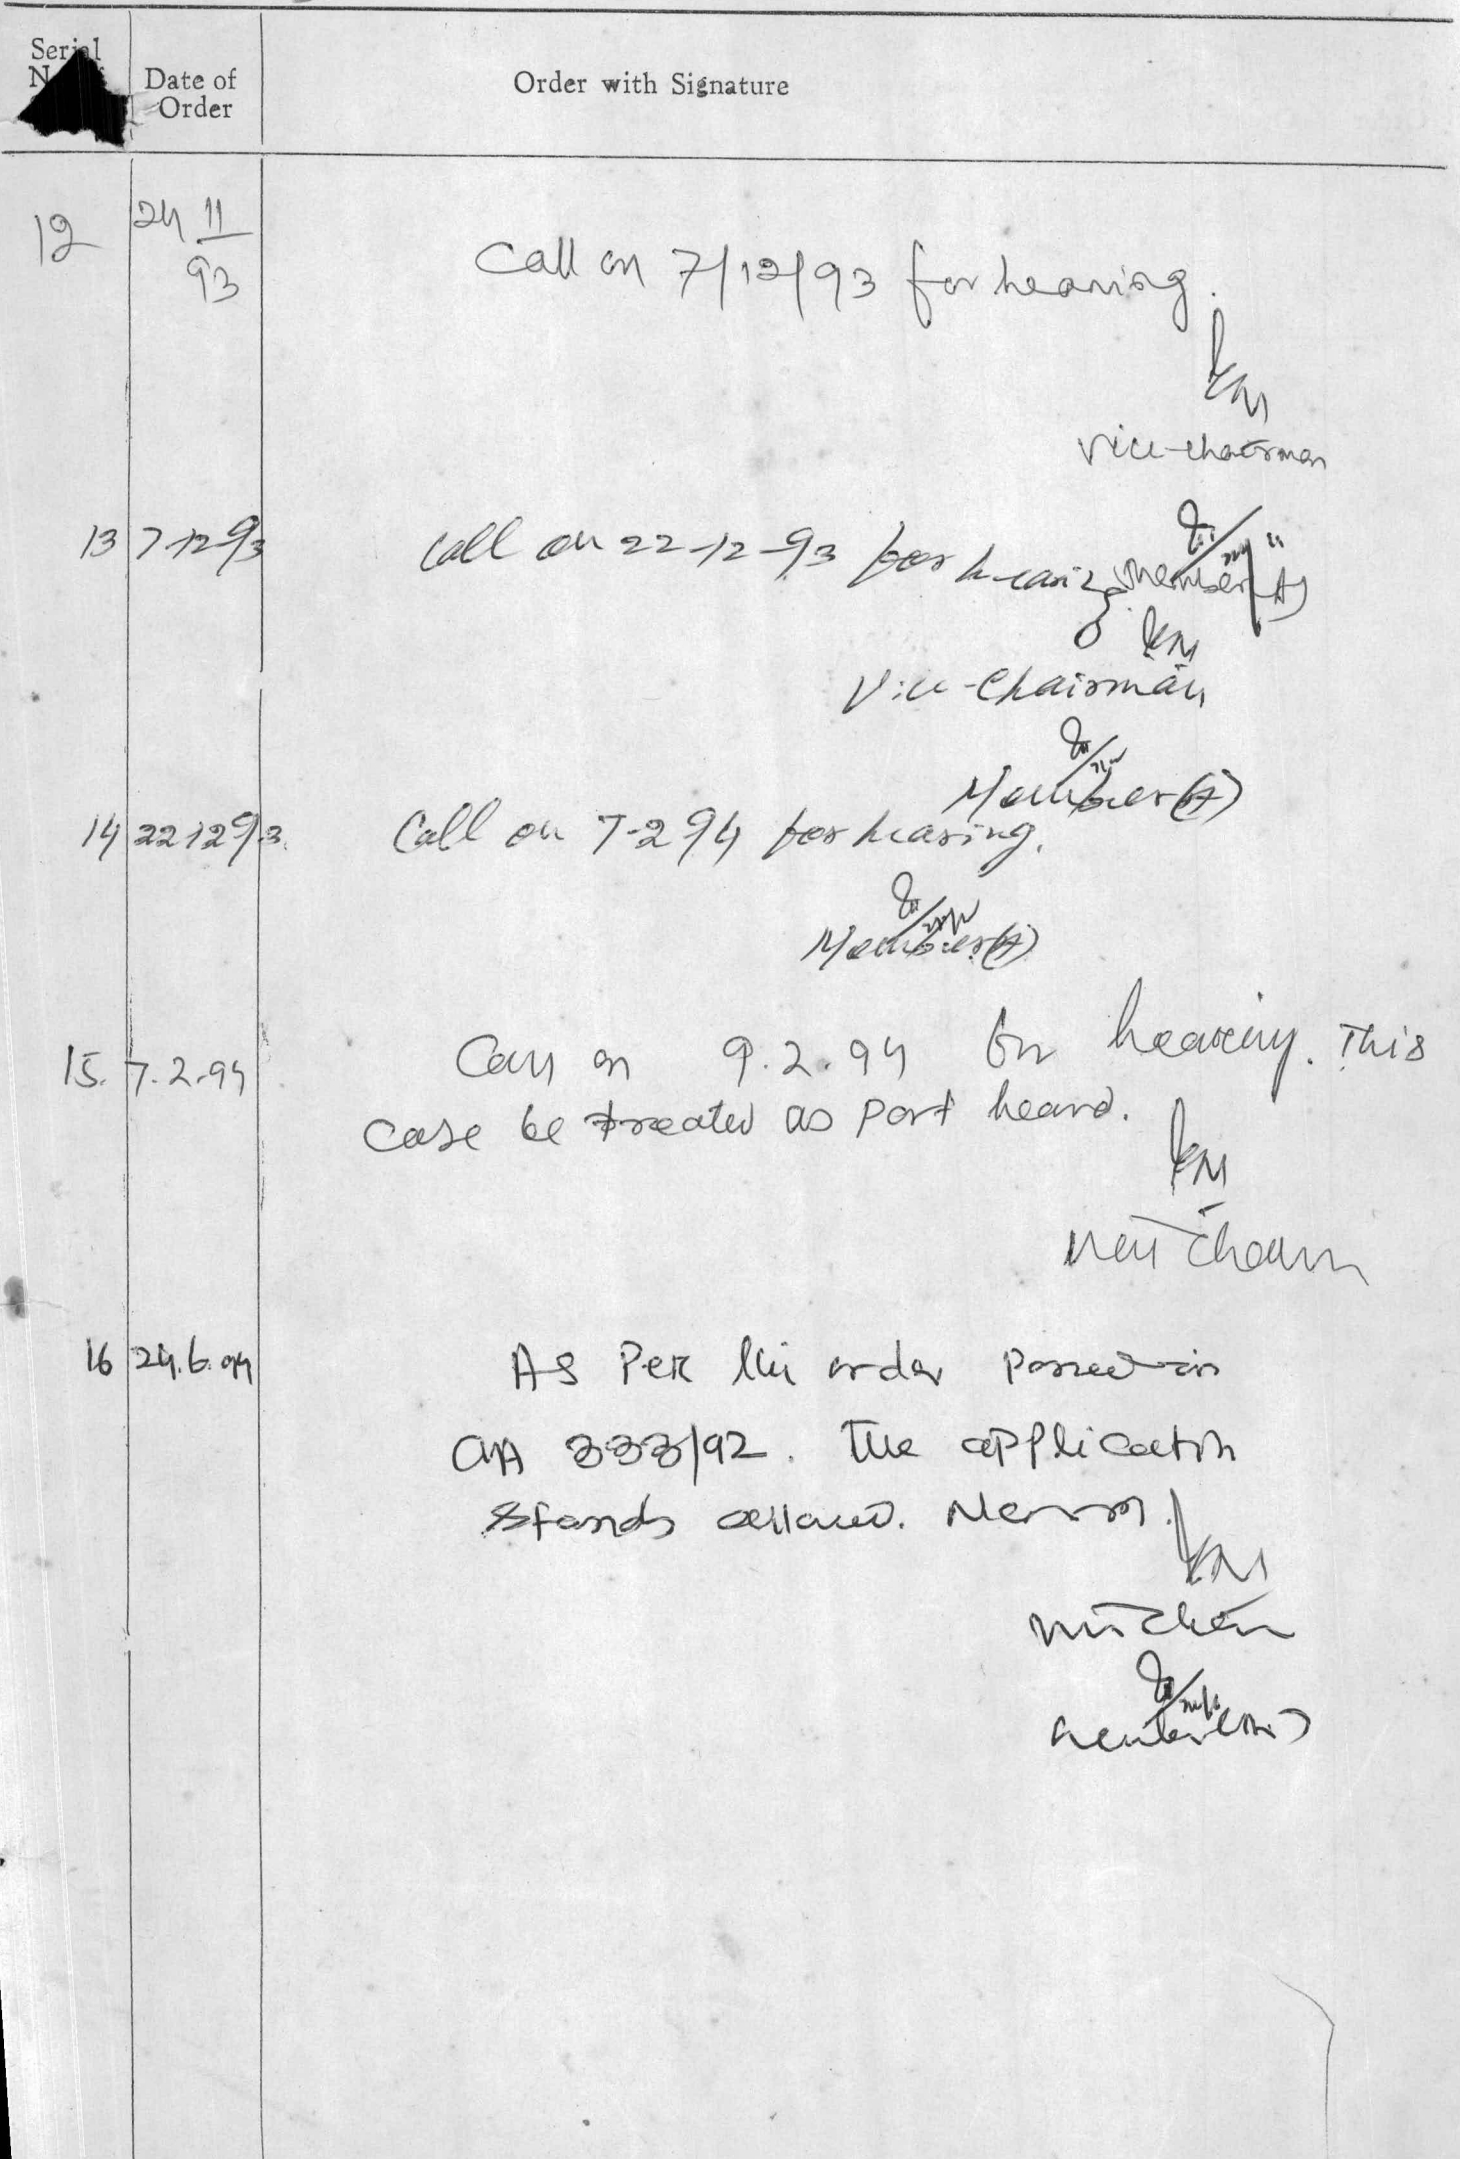 Serial
Date of
Order
Order with Signature
12 24 11/93
Call on 7/12/93 for hearing.
Vice-chairman
Member (A)
13 7-12-93 Call on 22-12-93 for hearing
Vice-Chairman
Member (A)
14 22-12-93. Call on 7-2-94 for hearing.
Member (A)
15. 7.2.94 Call on 9.2.94 for hearing. This
case be treated as part heard.
Vice Chairman
16 24.6.94 As Per the order passed in
OA 333/92. The application
stands allowed.